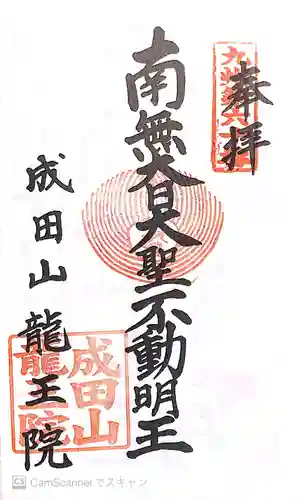 奉拝
南無大日大聖不動明王
成田山龍王院
成田山
龍王院
CS CamScanner でスキャン